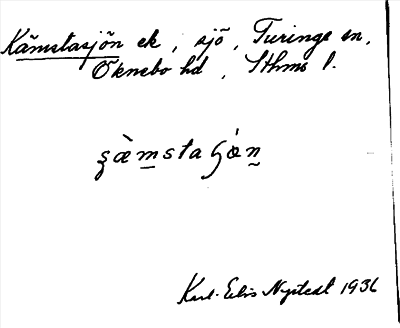 Kämstasjön ek, sjö, Turinge sn,
Öknebo hd, Sthms l.
ʂæ̀m̲staɧö́n̰
Karl-Eric Nystedt 1936